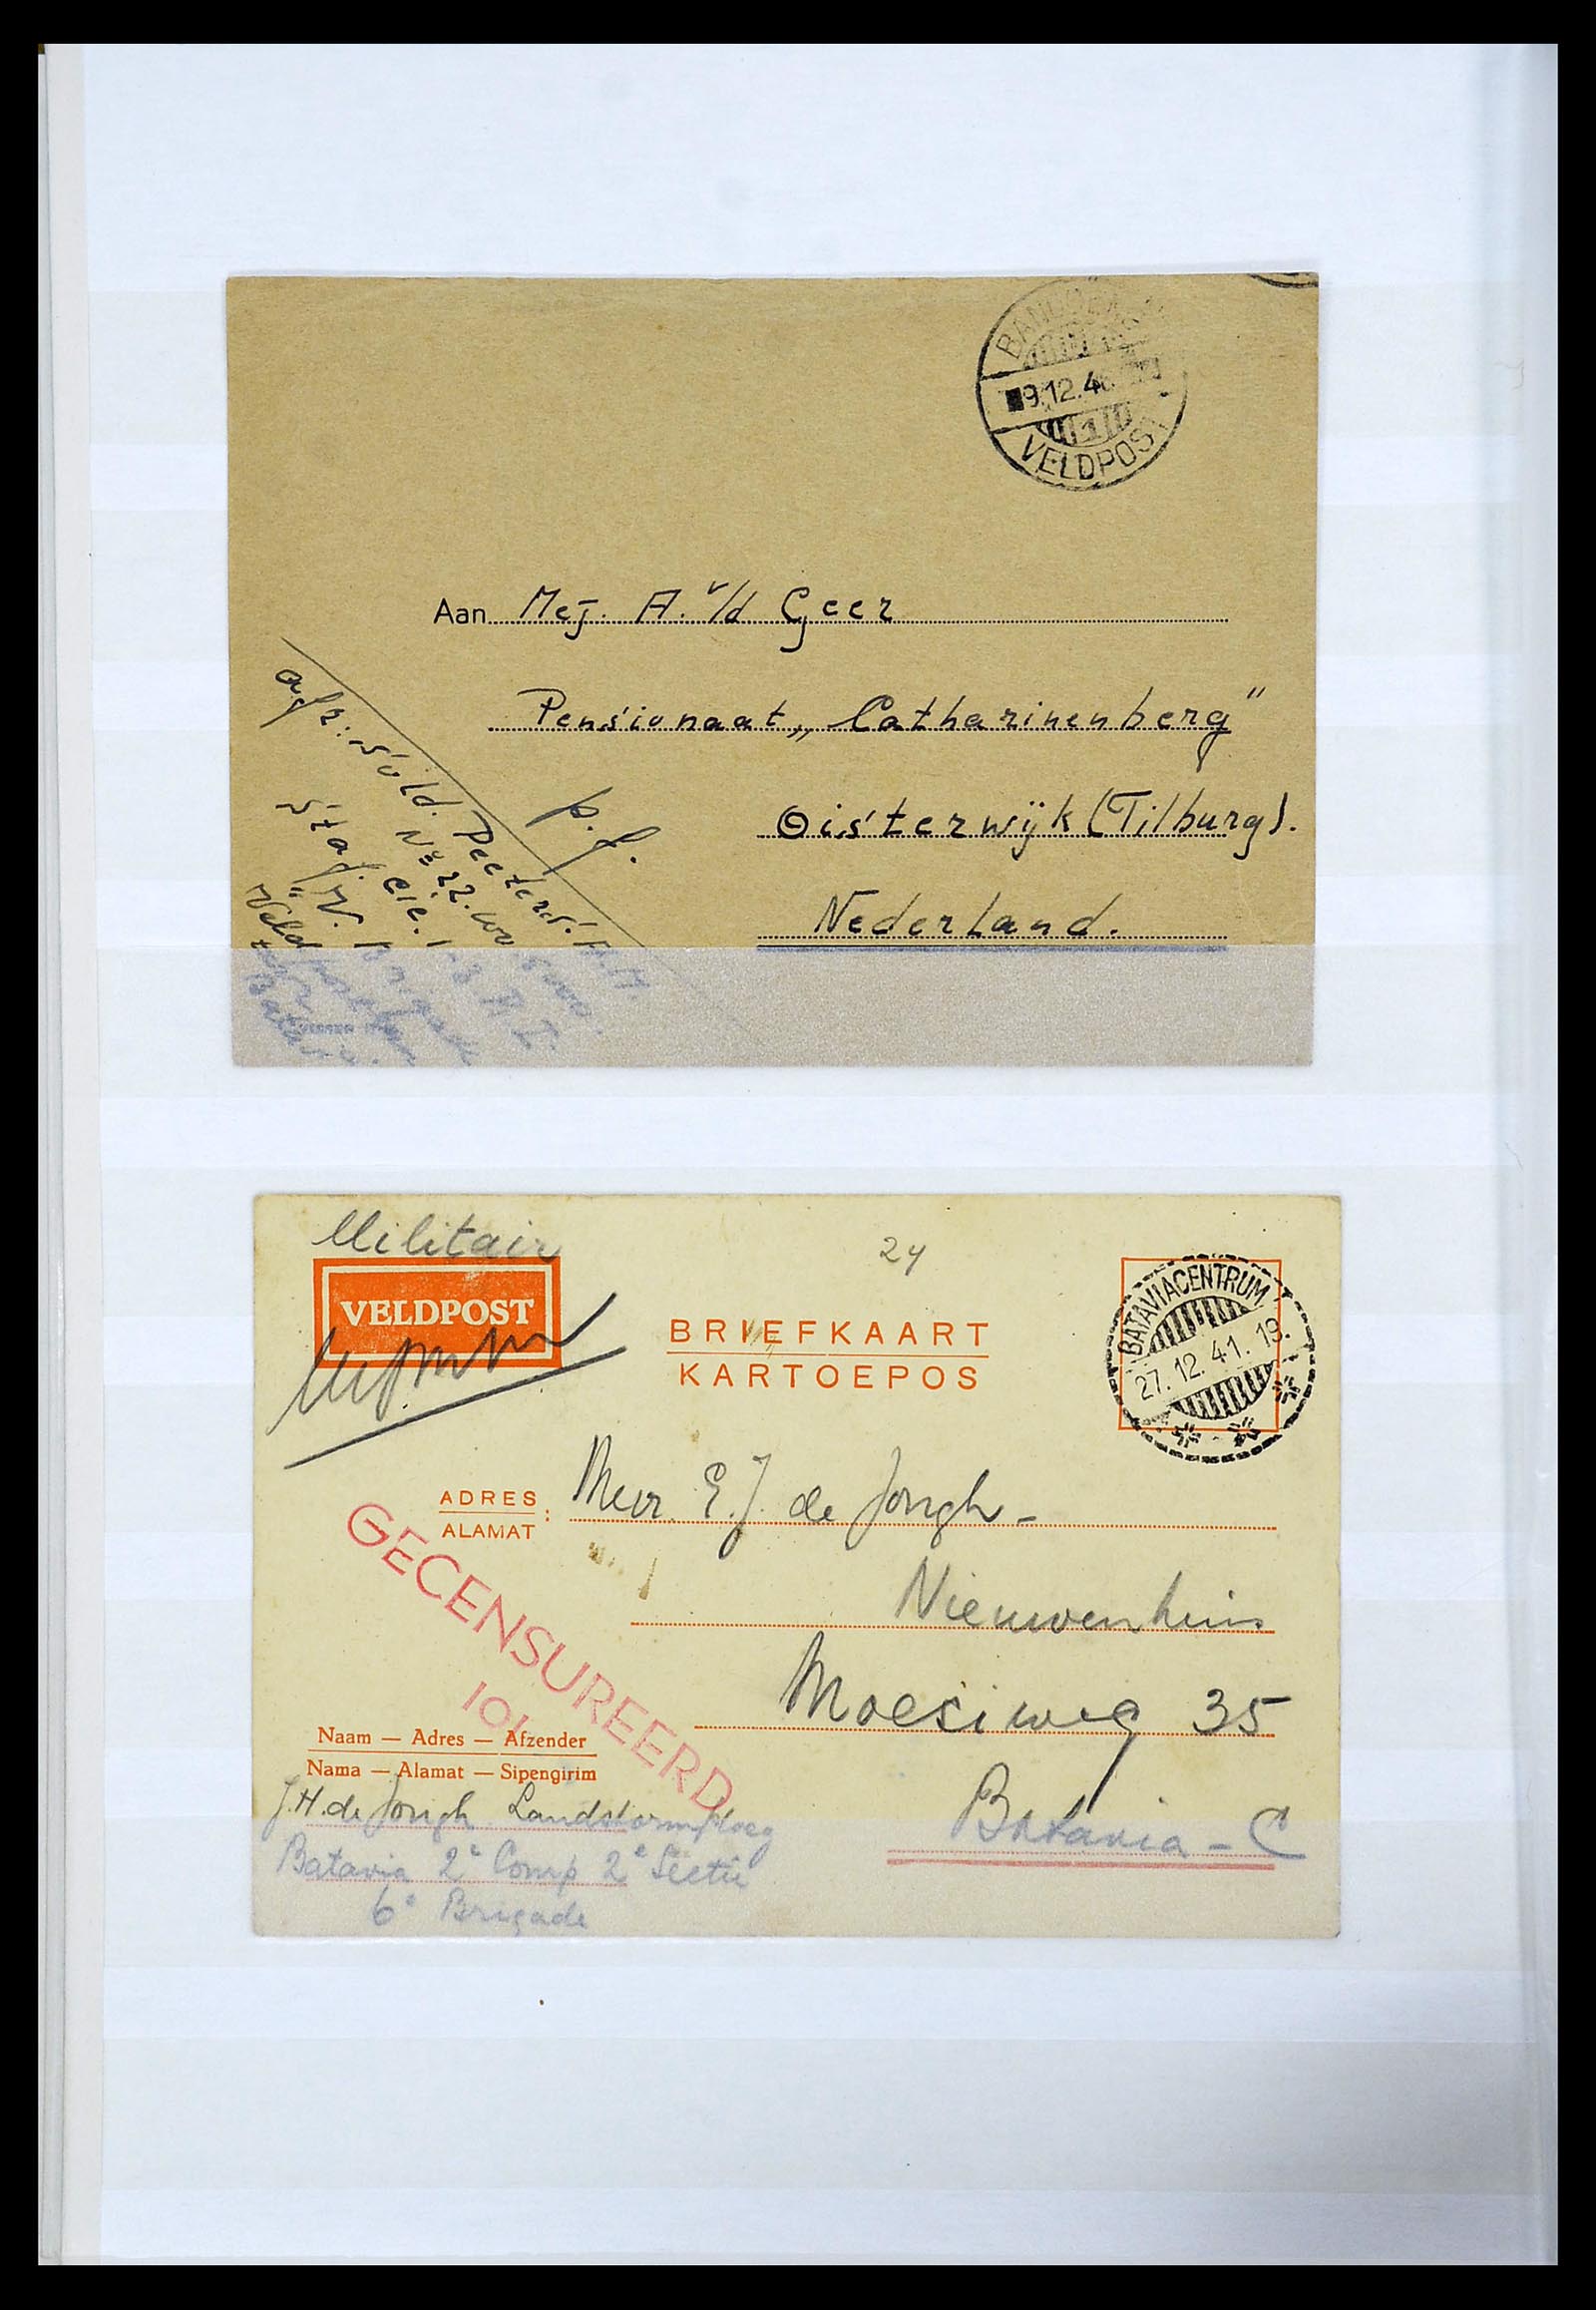 VELDPOST
9.12.4
1
Aan Mej. A. v/d Geer
Pensionaat „Catharinenberg”
Oisterwijk (Tilburg).
Nederland.
p.f.
afz: Sold. Peeters. H.
No 22.
Staf Cie. 1-
V. Brigade
Veldpost
Batavia.
Militair
VELDPOST
24
BRIEFKAART
KARTOEPOS
BATAVIACENTRUM
27.12.41.19.
ADRES :
ALAMAT
Mevr. E. J. de Jongh-
Nieuwenhuis
Moesiweg 35
Batavia-C
GECENSUREERD
10
Naam — Adres — Afzender
Nama — Alamat — Sipengirim
J.H. de Jongh Landstormploeg
Batavia 2e Comp 2e Sectie
6e Brigade